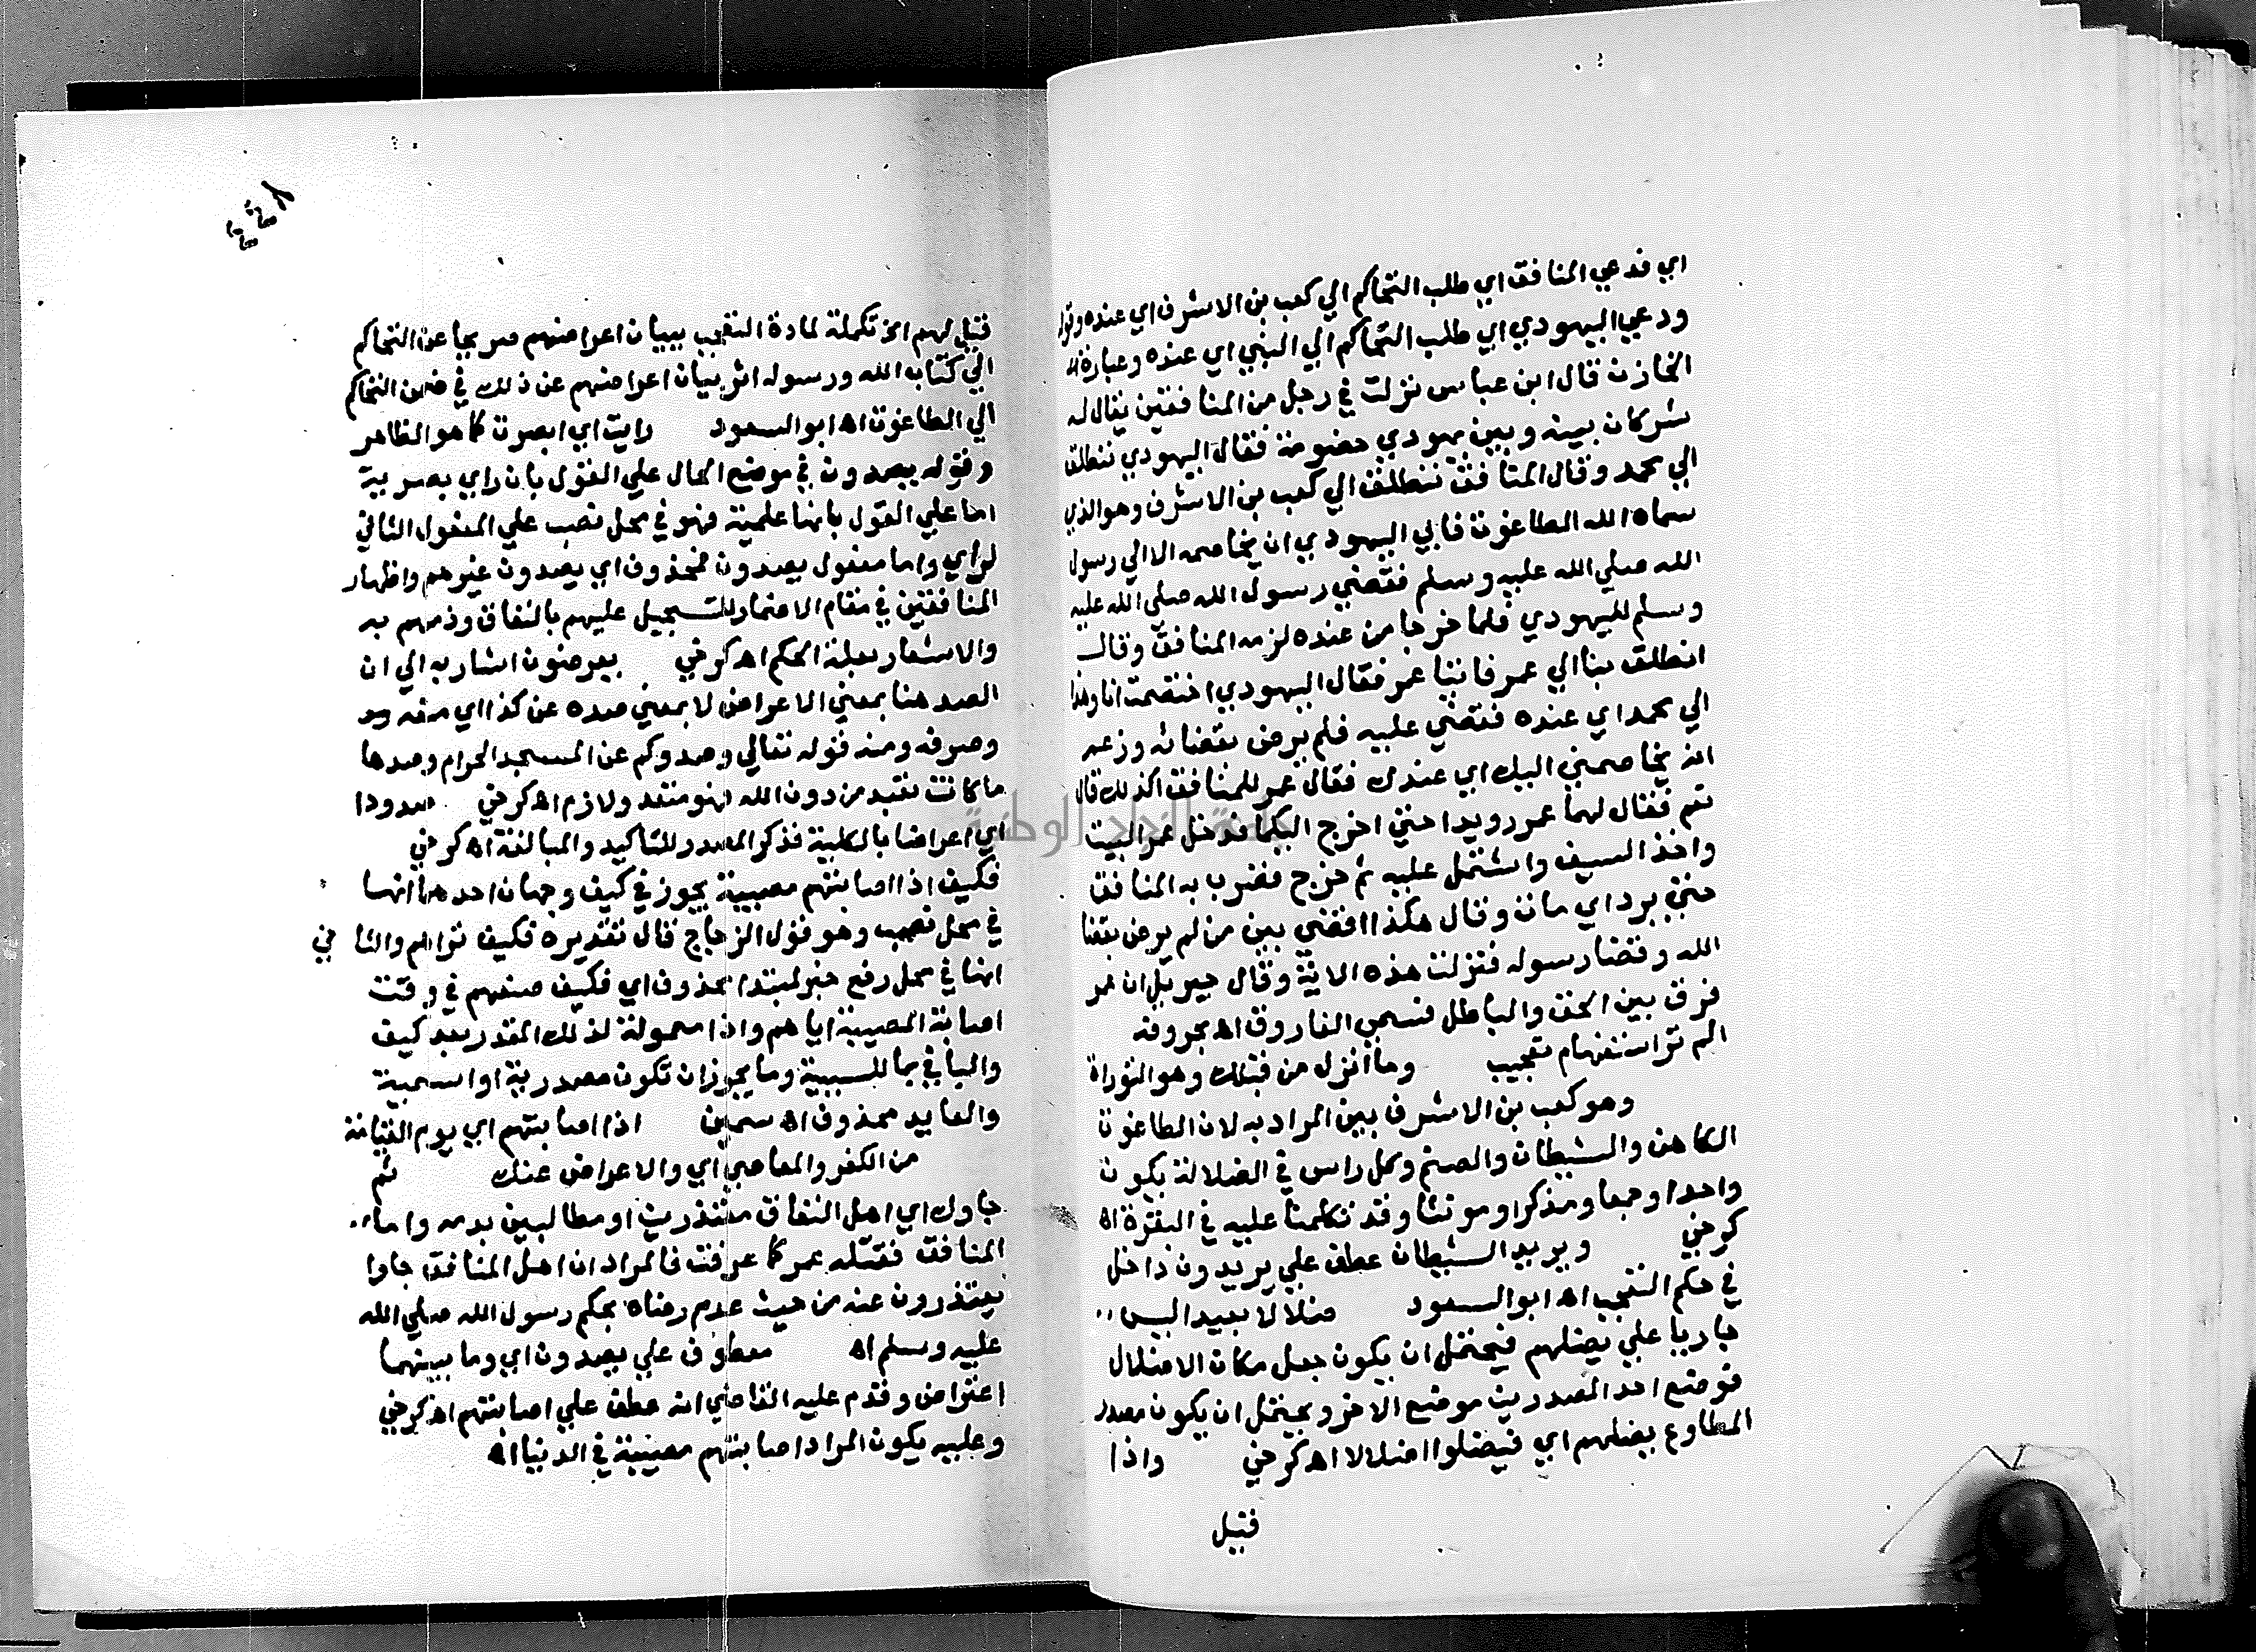 اي فدعي المنافق اي طلب التحاكم الي كعب بن الاشرف اي عنده وقوله
ودعي اليهودي اي طلب التحاكم الي النبي اي عنده وعبارة
الخازن قال ابن عباس نزلت في رجل من المنافقين يقال له
بشر كان بينه وبين يهودي خصومة فقال اليهودي ننطلق
الي محمد وقال المنافق ننطلق الي كعب بن الاشرف وهو الذي
سماه الله الطاغوت فابي اليهودي ان يخاصمه الا الي رسول
الله صلي الله عليه وسلم فقضي رسول الله صلي الله عليه
وسلم لليهودي فلما خرجا من عنده لزمه المنافق وقال
انطلق بنا الي عمر فاتيا عمر فقال اليهودي اختصمت انا وهذا
الي محمد اي عنده فقضي عليه فلم يرض بقضائه وزعم
انه يخاصمني اليك اي عندك فقال عمر للمنافق اكذلك قال
نعم فقال لهما عمر رويدا حتي اخرج اليكما فدخل عمر البيت
واخذ السيف واشتمل عليه ثم خرج فضرب به المنافق
حتي برد اي مات وقال هكذا اقضي بين من لم يرض بقضا
الله وقضا رسوله فنزلت هذه الاية وقال جبريل ان عمر
فرق بين الحق والباطل فسمي الفاروق اه بحروفه
الم تر استفهام تعجيب وما انزل من قبلك وهو التوراة
وهو كعب بن الاشرف بين المراد به لان الطاغوت
الكاهن والشيطان والصنم وكل راس في الضلالة يكون
واحدا وجمعا ومذكرا ومونثا وقد تكلمنا عليه في البقرة اه
كرخي ويريد الشيطان عطف علي يريدون داخل
في حكم التعجيب اه ابو السعود ضلالا بعيدا ليس
جاريا علي يضلهم فيحتمل ان يكون جعل مكان الاضلال
فوضع احد المصدرين موضع الاخر ويحتمل ان يكون مصدر
المطاوع يضلهم اي فيضلوا ضلالا اه كرخي واذا
قيل
٤٤٨
قيل لهم الخ تكملة لمادة التعجب ببيان اعراضهم صريحا عن التحاكم
الي كتاب الله ورسوله اثر بيان اعراضهم عن ذلك في ضمن التحاكم
الي الطاغوت اه ابو السعود رايت اي ابصرت كما هو الظاهر
وقوله يصدون في موضع الحال علي القول بان راي بصرية
اما علي القول بانها علمية فهو في محل نصب علي المفعول الثاني
لراي واما مفعول يصدون فمحذوف اي يصدون غيرهم واظهار
المنافقين في مقام الاضمار للتسجيل عليهم بالنفاق وذمهم به
والاشعار بعلة الحكم اه كرخي يعرضون اشار به الي ان
الصد هنا بمعني الاعراض لا بمعني صده عن كذا اي منعه
وصرفه ومنه قوله تعالي وصدوكم عن المسجد الحرام وصدها
ما كانت تعبد من دون الله فهو متعد ولازم اه كرخي صدودا
اي اعراضا بالكلية فذكر المصدر للتاكيد والمبالغة اه كرخي
فكيف اذا اصابتهم مصيبة يجوز في كيف وجهان احدهما انها
في محل نصب وهو قول الزجاج قال تقديره فكيف تراهم والثاني
انها في محل رفع خبر لمبتدا محذوف اي فكيف صنعهم في وقت
اصابة المصيبة اياهم واذا معمولة لذلك المقدر بعد كيف
والبا في بما للسببية وما يجوز ان تكون مصدرية او اسمية
والعايد محذوف اه سمين اذا اصابتهم اي يوم القيامة
من الكفر والمعاصي اي والاعراض عنك ثم
جاوك اي اهل النفاق معتذرين او مطالبين بدمه واما
المنافق فقتله عمر كما عرفت فالمراد ان اهل المنافق جاوا
يعتذرون عنه من حيث عدم رضاه بحكم رسول الله صلي الله
عليه وسلم اه معطوف علي يصدون اي وما بينهما
اعتراض وقدم عليه القاضي انه عطف علي اصابتهم اه كرخي
وعليه يكون المراد اصابتهم مصيبة في الدنيا اه
جامعة النجاح الوطنية